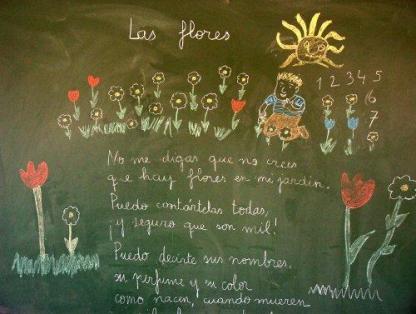 Las flores
1 2 3 4 5
6
7
No me digas que no crees
que hay flores en mi jardín.
Puedo contártelas todas,
¡y seguro que son mil!
Puedo decirte sus nombres,
su perfume y su color
como nacen, cuando mueren